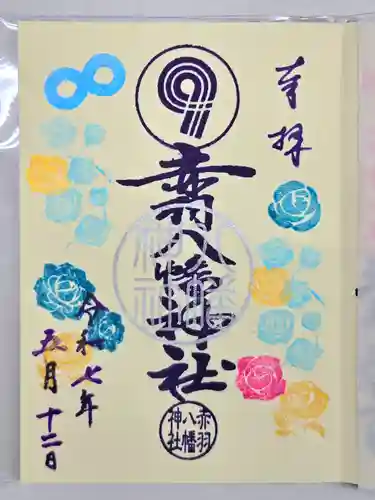 奉拝
赤羽八幡神社
八幡神社
赤羽
八幡
神社
令和七年
五月十二日